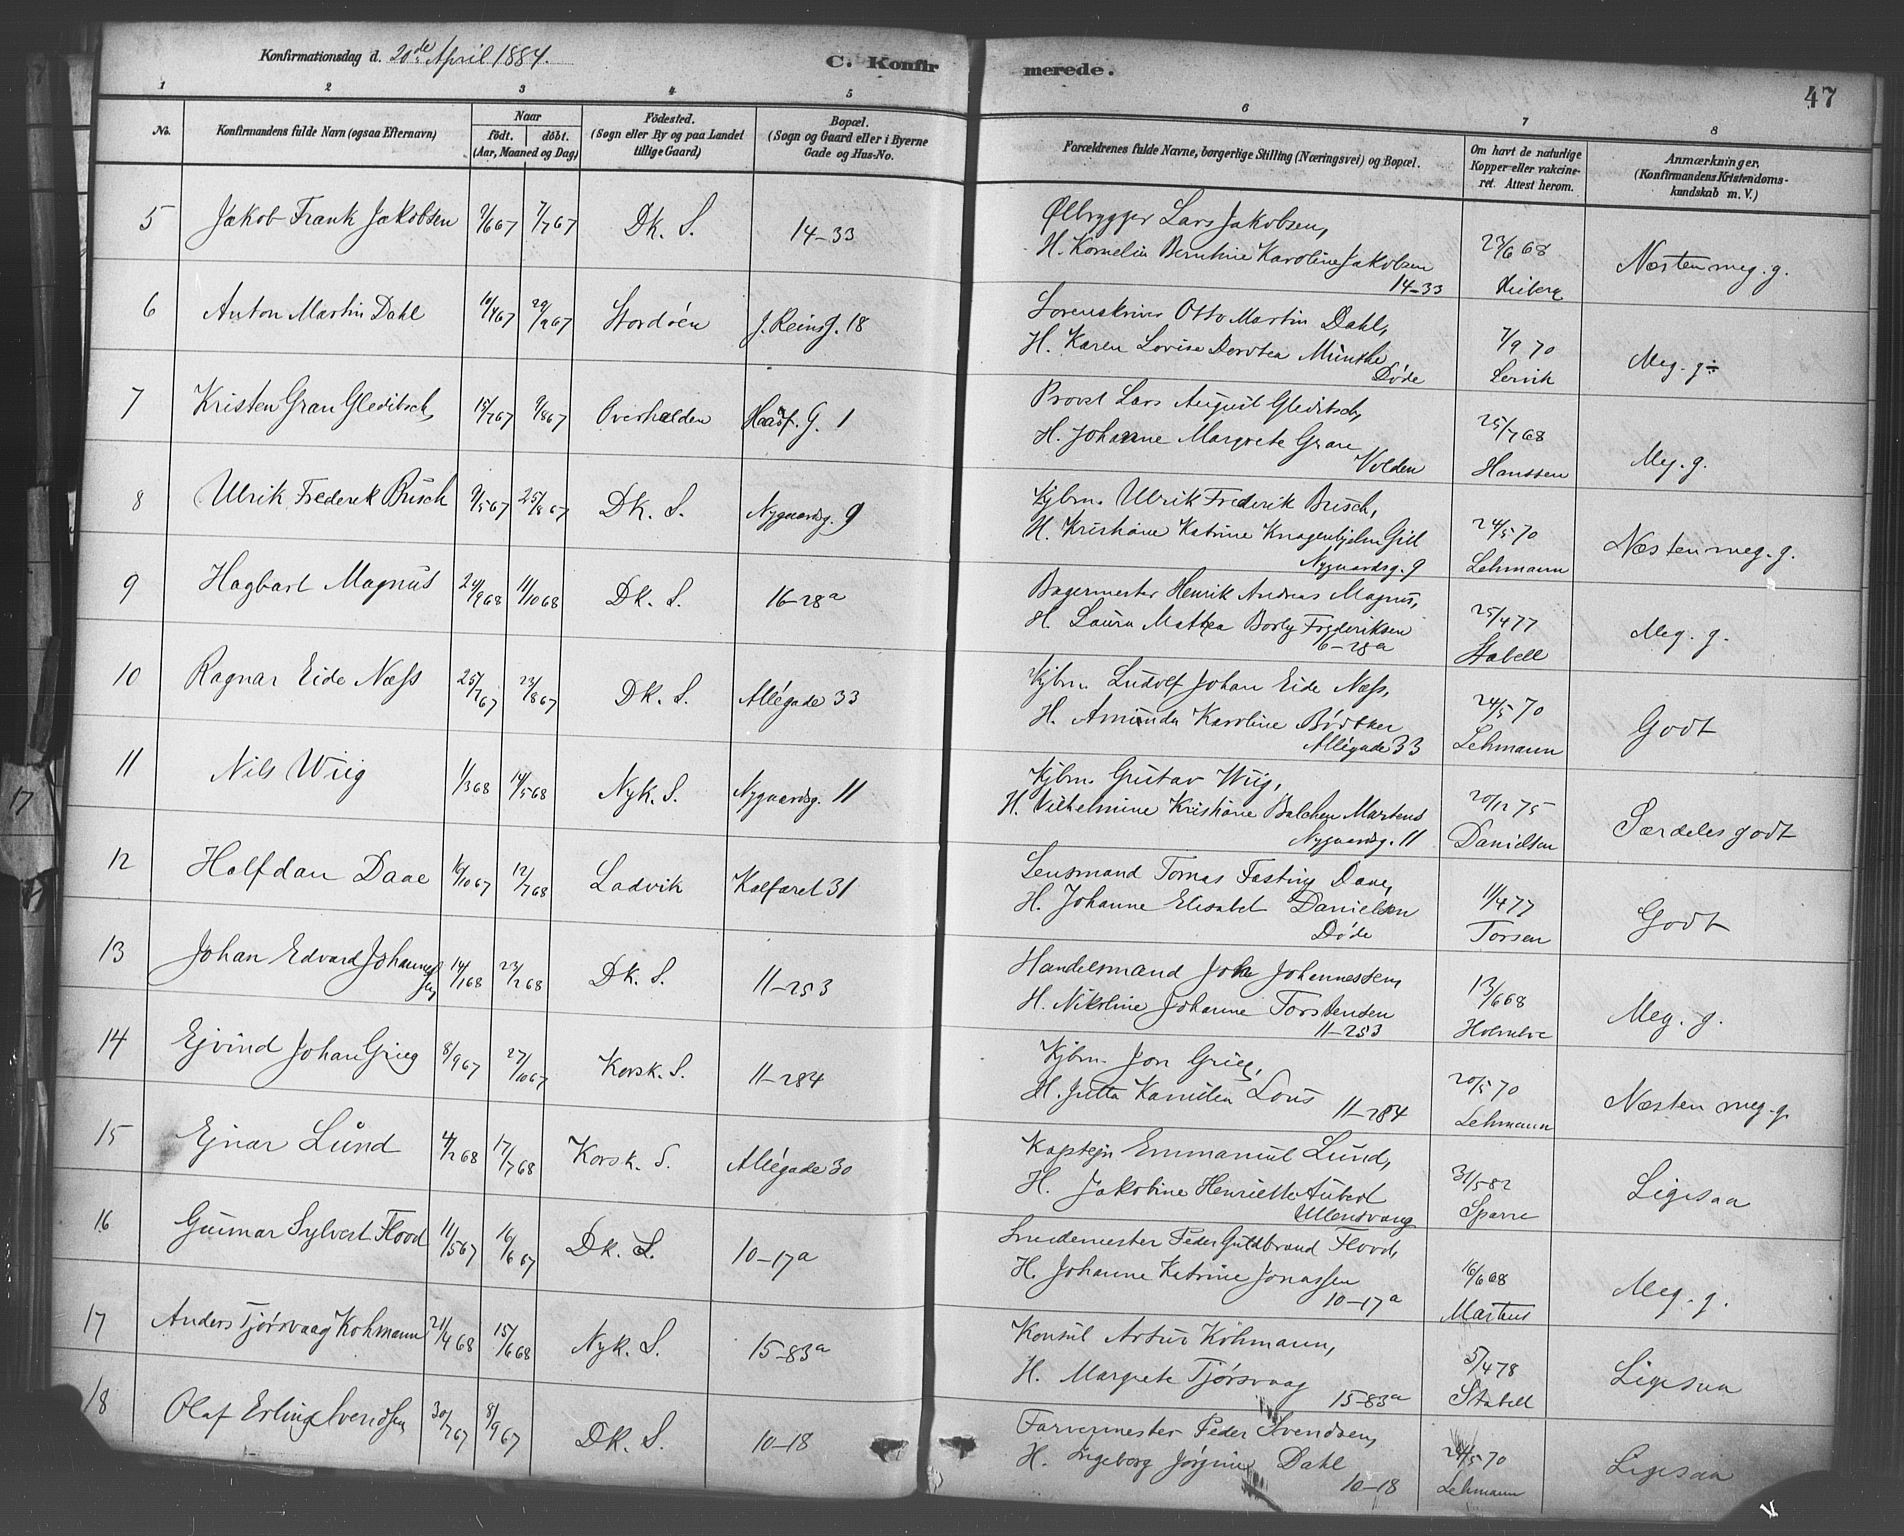 Konfirmationsdag d. 20de April 1884.
C. Konfir merede.
47
1 2 3 4 5 6 7 8
No.
Konfirmandens fulde Navn (ogsaa Efternavn)
Naar
födt. döbt.
(Aar, Maaned og Dag)
Födested.
(Sogn eller By og paa Landet
tillige Gaard)
Bopæl.
(Sogn og Gaard eller i Byerne
Gade og Hus-No.
Forældrenes fulde Navne, borgerlige Stilling (Næringsvei) og Bopæl.
Om havt de naturlige
Kopper eller vakcine-
ret. Attest herom.
Anmærkninger.
(Konfirmandens Kristendoms-
kundskab m. V.)
5 Jakob Frank Jakobsen 9/6 67 7/7 67 Dk. S. 14-33
Ølbrygger Lars Jakobsen,
H. Kornelia Berntine Karoline Jakobsen
14-33
23/6 68
Næsten meg. g.
6 Anton Martin Dahl 67 29/9 67 Stordøen J. Reinsg. 18
Sorenskriver Otto Martin Dahl,
H. Karen Lovise Dorotea Munthe
Døde
7/9 70
Lervik
Meg. g÷
7 Kristen Gran Gleditsch, 18/7 67 9/8 67 Overhalden G. 1
Provst Lars August Gleditsch,
H. Johanne Margrete Gran
Volden
25/7 68
Hanssen
Meg. g.
8 Ulrik Frederik Busch 9/5 67 25/8 67 Dk. S. Nygaardsg. 9
Kjbm. Ulrik Frederik Busch,
H. Kristiane Katrine Knagenhjelm Gill
Nygaardsg. 9
24/5 70
Lehmann
Næsten meg. g.
9 Hagbart Magnus 24/9 68 11/10 68 Dk. S. 16-28a
Bagermester Henrik Andreas Magnus,
H. Laura Mathea Borly Frederiksen
16-28a
25/4 77
Stabell
Meg. g.
10 Ragnar Eide Næss 25/7 67 23/8 67 Dk. S. Allégade 33
Kjbm. Ludolf Johan Eide Næss,
H. Aminda Karoline Bødtker
Allégade 33
24/5 70
Lehmann
Godt
11 Nils Wiig 1/3 68 14/5 68 Nyk. S. Nygaardsg. 11
Kjbm. Gustav Wiig,
H. Vilhelmine Kristiane Balchen Martens
Nygaardsg. 11
20/12 75
Danielsen
Særdeles godt
12 Halfdan Daae 16/10 67 12/7 68 Ladvik Kalfaret 31
Lensmand Tomas Fasting Daae,
H. Johanne Elisabet Danielsen
Døde
11/4 77
Torsen
Godt
13 Johan Edvard Johannes
sen
14/1 68 23/2 68 Dk. S. 11-253
Handelsmand John Johannessen,
H. Nikoline Johanne Torstensen
11-253
13/6 68
Meg. g.
14 Ejvind Johan Grieg 8/9 67 27/10 67 Korsk. S. 11-284
Kjbm. Jon Grieg,
H. Jutta Kamilla Lous
11-284
20/5 70
Lehmann
Næsten meg. g.
15 Ejnar Lund 4/2 68 17/7 68 Korsk. S. Allégade 30
Kaptejn Emmanuel Lund,
H. Jakobine Henriette Aubert
Ullensvang
31/5 82
Sparre
Ligesaa
16 Gunnar Sylvest Flood 11/5 67 16/6 67 Dk. S. 10-17a
Smedemester Peder Guldbrand Flood,
H. Johanne Katrine Jonassen
10-17a
16/6 68
Martens
Meg. g.
17 Anders Tjørsvaag Kohmann 21/4 68 15/6 68 Nyk. S. 15-83a
Konsul Artur Kohmann,
H. Margrete Tjørsvaag
15-83a
5/4 78
Stabell
Ligesaa
18 Olaf Erling Svendsen 30/7 67 8/9 67 Dk. S. 10-18
Farvermester Peder Svendsen,
H. Ingeborg Jørgine Dahl
10-18
24/5 70
Lehmann
Ligesaa
17